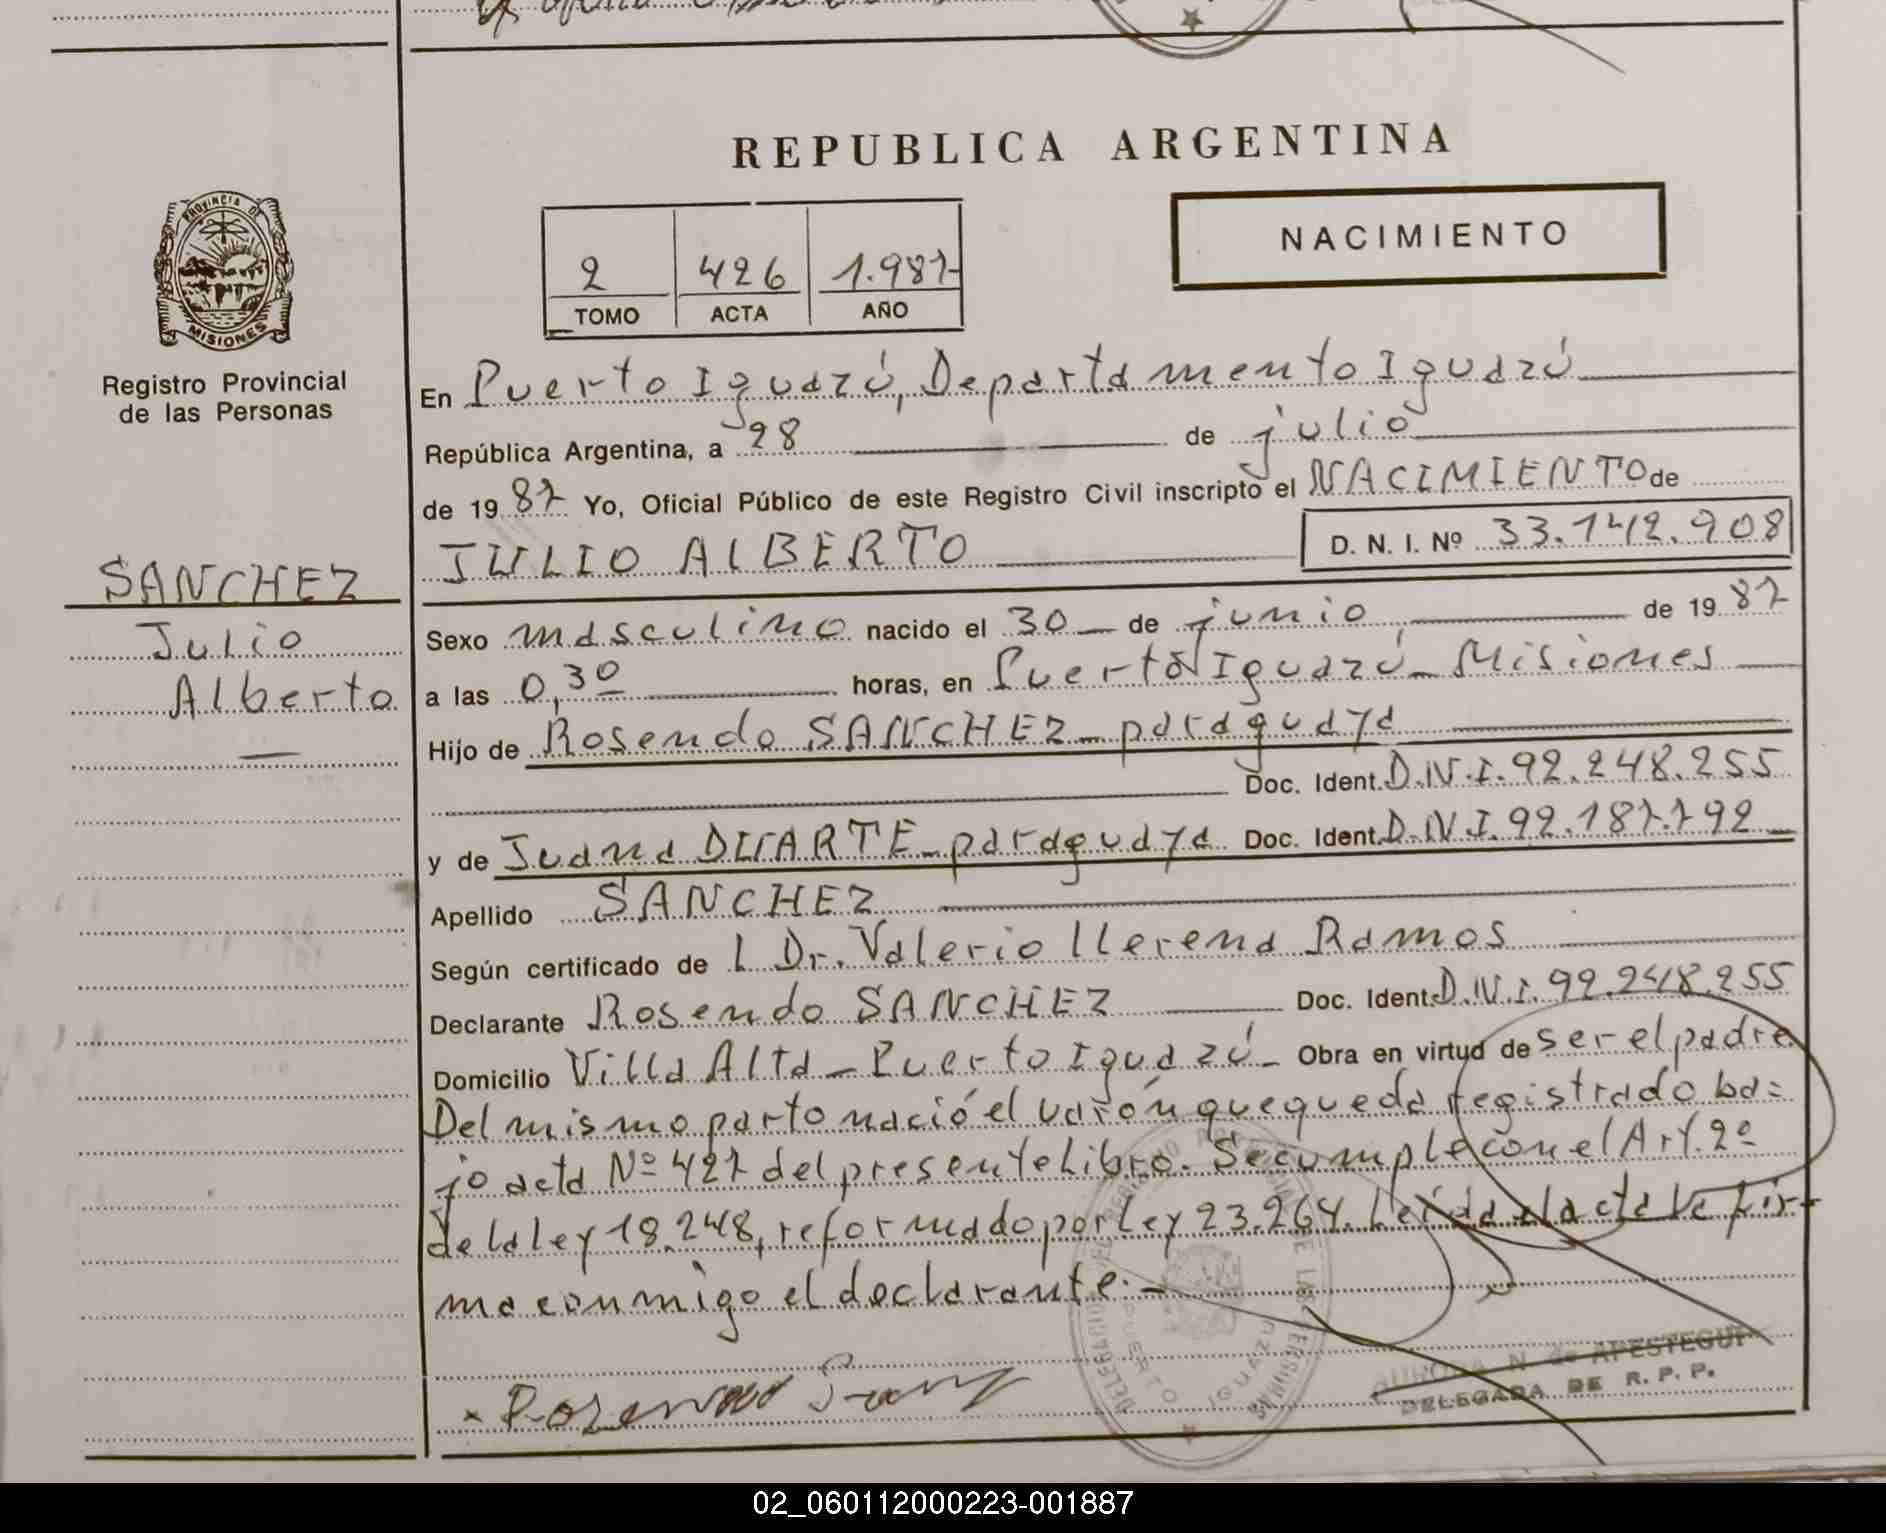 REPUBLICA ARGENTINA
PROVINCIA DE
MISIONES
Registro Provincial
de las Personas
SANCHEZ
Julio
Alberto
2 426 1.987
TOMO ACTA AÑO
NACIMIENTO
En Puerto Iguazú, Departamento Iguazú
República Argentina, a 28 de julio
de 1987 Yo, Oficial Público de este Registro Civil inscripto el NACIMIENTO de
JULIO ALBERTO D. N. I. Nº 33.142.908
Sexo masculino nacido el 30 de junio de 1987
a las 0,30 horas, en Puerto Iguazú - Misiones
Hijo de Rosendo SANCHEZ - paraguaya
Doc. Ident. D.N.I. 92.248.255
y de Juana DUARTE - paraguaya Doc. Ident. D.N.I. 92.187.792
Apellido SANCHEZ
Según certificado de l Dr. Valerio Llerena Ramos
Declarante Rosendo SANCHEZ Doc. Ident. D.N.I. 92.248.255
Domicilio Villa Alta - Puerto Iguazú - Obra en virtud de ser el padre
Del mismo parto nació el varón que queda registrado ba=
jo acta Nº 427 del presente Libro. Se cumple con el Art. 2º
de la ley 18.248, reformado por ley 23.264. Leída el acta la fir-
ma conmigo el declarante. -
x Rosendo
N. de APESTEGUI
DELEGADA DE R. P. P.
02_060112000223-001887